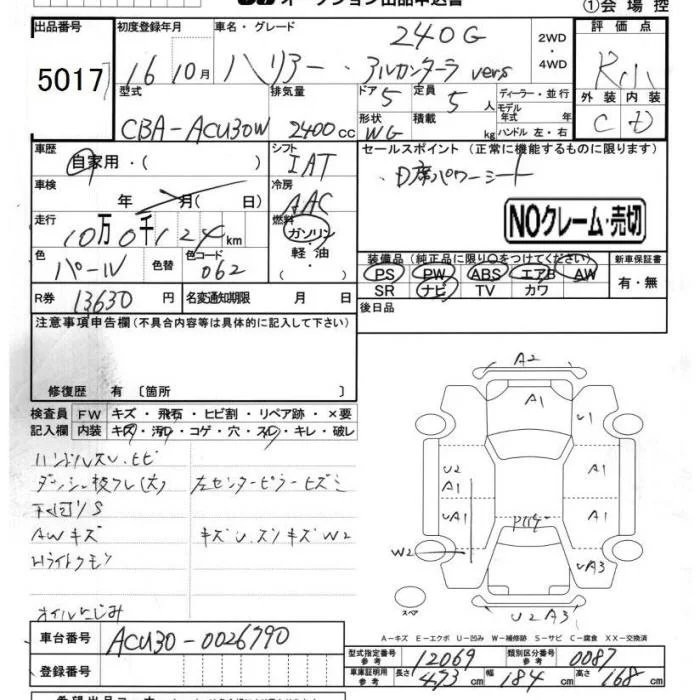 オークション出品申込書
①会場控
出品番号 5017
初度登録年月 16 10月
車名・グレード ハリアー 240G アルカンターラ vers
2WD・4WD
評価点 R小
外装 C 内装 D
型式 CBA-ACU30W
排気量 2400cc
ドア 5
形状 WG
定員 5人
積載 kg
ディーラー・並行
モデル年式 年
ハンドル 左・右
車歴 自家用・( )
シフト IAT
車検 年 月(日)
冷房 AAC
走行 10万0千124km
燃料 ガソリン・軽油・( )
色 パール 色替
色コード 062
R券 13630円
名変通知期限 月 日
セールスポイント (正常に機能するものに限ります)
D席パワーシート
NOクレーム・売切
装備品 (純正品に限り○をつけてください)
新車保証書
PS PW ABS エアB AW
SR ナビ TV カワ
有・無
後日品
注意事項申告欄 (不具合内容等は具体的に記入して下さい)
修復歴 有 〔箇所 〕
検査員記入欄
FW キズ・飛石・ヒビ割・リペア跡・×要
内装 キズ・汚れ・コゲ・穴・スレ・キレ・破レ
ハンドルスレ.ヒビ
ダッシュ板ズレ(大) 左センターピラーヒズミ
下回りS
AWキズ
Hライトクモリ
オイルにじみ
A2
A1
U1
U2
A1
A1
UA1
A1
W2
UA3
U2A3
スペア
A-キズ E-エクボ U-凹み W-補修跡 S-サビ C-腐食 XX-交換済
車台番号 ACU30-0026790
登録番号
型式指定番号 参考 12069
類別区分番号 参考 0087
車庫証明用 参考 長さ 473cm 幅 184cm 高さ 168cm